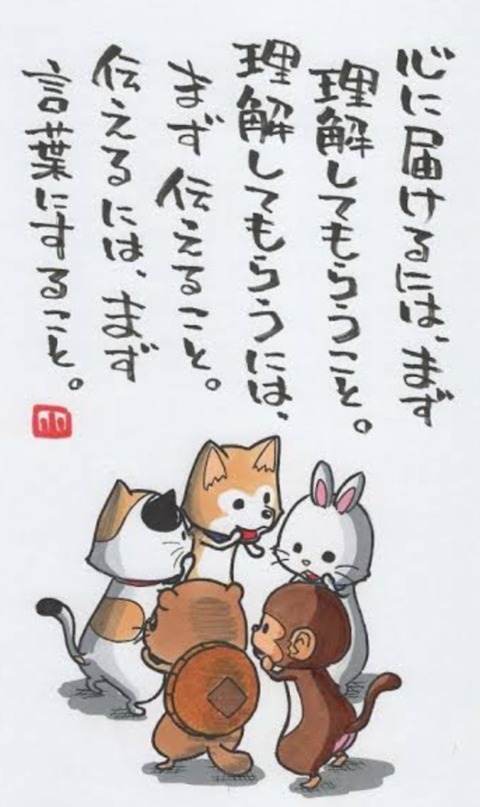 心に届けるには、まず
理解してもらうこと。
理解してもらうには、
まず 伝えること。
伝えるには、まず
言葉にすること。